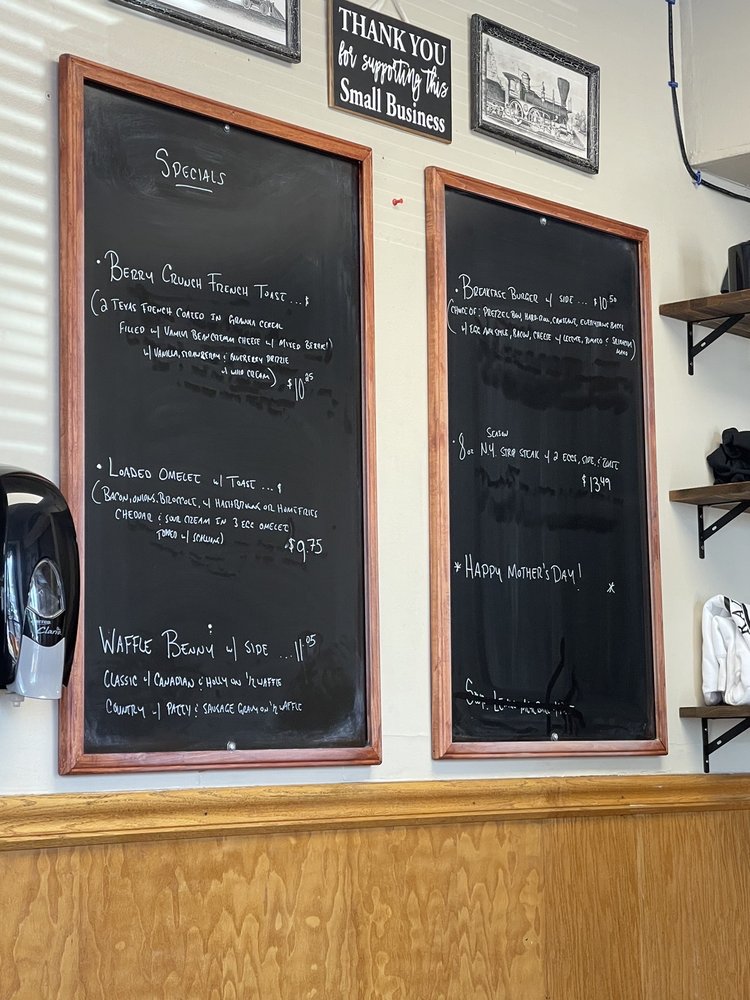 THANK YOU
for supporting this
Small Business
SPECIALS
• BERRY CRUNCH FRENCH TOAST ... $
(2 TEXAS FRENCH COATED IN GRANOLA CEREAL
FILLED w/ VANILLA BEAN CREAM CHEESE w/ MIXED
w/ VANILLA, STRAWBERRY & BLUEBERRY DRIZZLE
& WHIP CREAM) $10.25
• LOADED OMELET w/ TOAST ... $
(BACON, ONIONS, BROCCOLI, w/ HASHBROWNS OR HOMEFRIES
CHEDDAR & SOUR CREAM IN 3 EGG OMELET
TOPPED w/ SCALLIONS) $9.75
WAFFLE BENNY w/ SIDE ... 11.05
CLASSIC w/ CANADIAN & HOLLY ON 'n WAFFLE
COUNTRY w/ PATTY & SAUSAGE GRAVY ON 'n WAFFLE
• BREAKFAST BURGER w/ SIDE ... $10.50
(CHOICE OF: PRETZEL BUN, HARD ROLL, CROISSANT, EVERYTHING BAGEL
w/ EGG ANY STYLE, BACON, CHEESE w/ LETTUCE, TOMATO & SRIRACHA
MAYO)
SEASON
• 8oz NY STRIP STEAK w/ 2 EGGS, SIDE, & TOAST
$13.49
* HAPPY MOTHER'S DAY! *